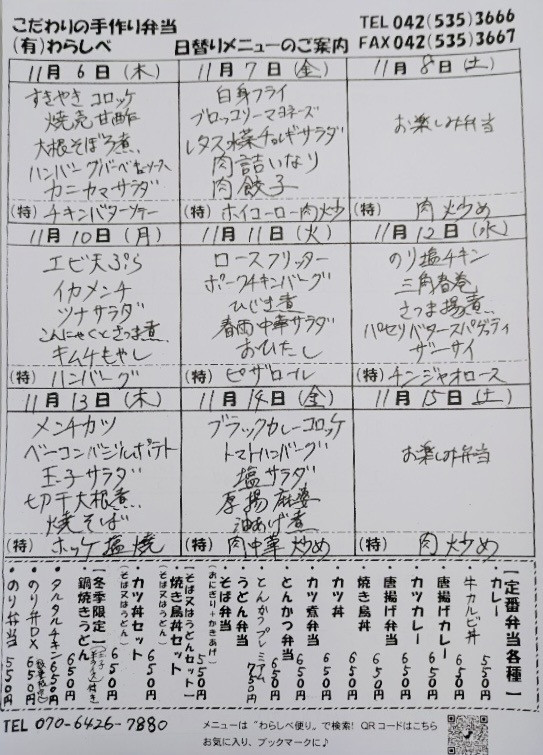 こだわりの手作り弁当
(有)わらしべ
日替りメニューのご案内
TEL 042(535)3666
FAX 042(535)3667
11月6日(木)
すきやきコロッケ
焼売甘酢
大根そぼろ煮
ハンバーグバーベキューソース
カニカマサラダ
(特)チキンバターソテー
11月7日(金)
白身フライ
ブロッコリーマヨネーズ
レタス水菜チョレギサラダ
肉詰いなり
肉餃子
(特)ホイコーロー肉炒
11月8日(土)
お楽しみ弁当
(特)肉炒め
11月10日(月)
エビ天ぷら
イカメンチ
ツナサラダ
こんにゃくとさつま煮
キムチもやし
(特)ハンバーグ
11月11日(火)
ロースフリッター
ポークチキンバーグ
ひじき煮
春雨中華サラダ
おひたし
(特)ピザロール
11月12日(水)
のり塩チキン
三角春巻
さつま揚煮
パセリバタースパゲッティ
ザーサイ
(特)チンジャオロース
11月13日(木)
メンチカツ
ベーコンバジルポテト
玉子サラダ
切干大根煮
焼そば
(特)ホッケ塩焼
11月14日(金)
ブラックカレーコロッケ
トマトハンバーグ
塩サラダ
厚揚麻婆
油あげ煮
(特)肉中華炒め
11月15日(土)
お楽しみ弁当
(特)肉炒め
【定番弁当各種】
・カレー 550円
・牛カルビ丼 650円
・唐揚げカレー 650円
・カツカレー 650円
・唐揚げ弁当 650円
・焼き鳥丼 650円
・カツ丼 650円
・カツ煮弁当 650円
・とんかつ弁当 650円
・とんかつプレミアム 750円
・うどん弁当
・そば弁当 550円
(おにぎり+かきあげ)
【そば又はうどんセット】
・焼き鳥丼セット 650円
(そば又はうどん)
・カツ丼セット 650円
(そば又はうどん)
【冬季限定】
・鍋焼きうどん 650円
・タルタルチキン 650円
・のり弁DX 650円
・のり弁当 550円
TEL 070-6426-7880
メニューは"わらしべ便り"で検索! QRコードはこちら
お気に入り、ブックマークに♪